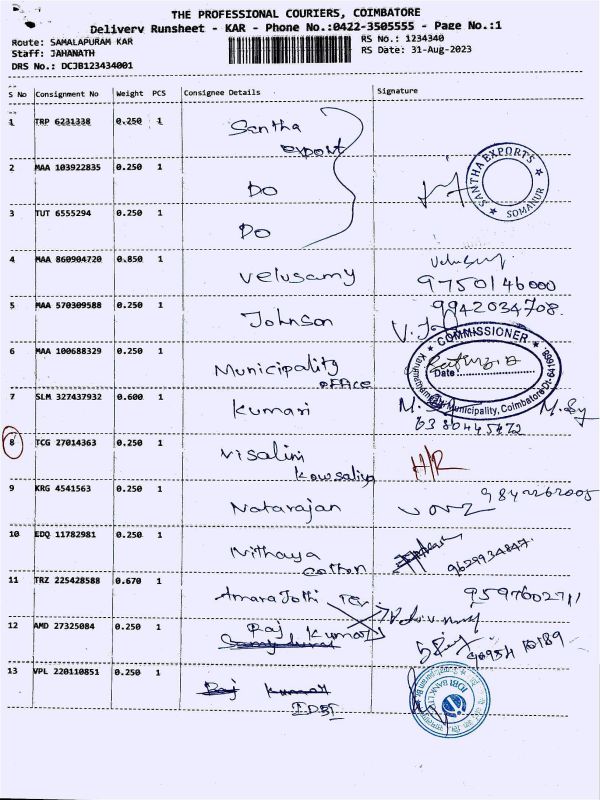 THE PROFESSIONAL COURIERS, COIMBATORE
Delivery Runsheet - KAR - Phone No.:0422-3505555 - Page No.:1
Route: SAMALAPURAM KAR
RS No.: 1234340
Staff: JAHANATH
RS Date: 31-Aug-2023
DRS No.: DCJB123434001
S No Consignment No Weight PCS Consignee Details Signature
1 TRP 6231338 0.250 1 Santha export
2 MAA 103922835 0.250 1 DO
SANTHA EXPORTS SOMANUR
3 TUT 6555294 0.250 1 DO
4 MAA 860904720 0.850 1 Velusamy Velusamy
9750146000
5 MAA 570309588 0.250 1 Johnson 9942034708.
6 MAA 100688329 0.250 1 Municipality office
COMMISSIONER
Date:
Municipality, Coimbatore Dt- 641
7 SLM 327437932 0.600 1 Kumari
8 TCG 27014363 0.250 1 Visalini Kowsaliya H/R
9 KRG 4541563 0.250 1 Natarajan 9842262005
10 EDQ 11782981 0.250 1 Nithaya Cotton 9629934847.
11 TRZ 225428588 0.670 1 Amara Jothi Tex 9597602711
12 AMD 27325084 0.250 1 Raj Kumar
13 VPL 220110851 0.250 1 Raj Kumar
IDBI
IDBI BANK LTD